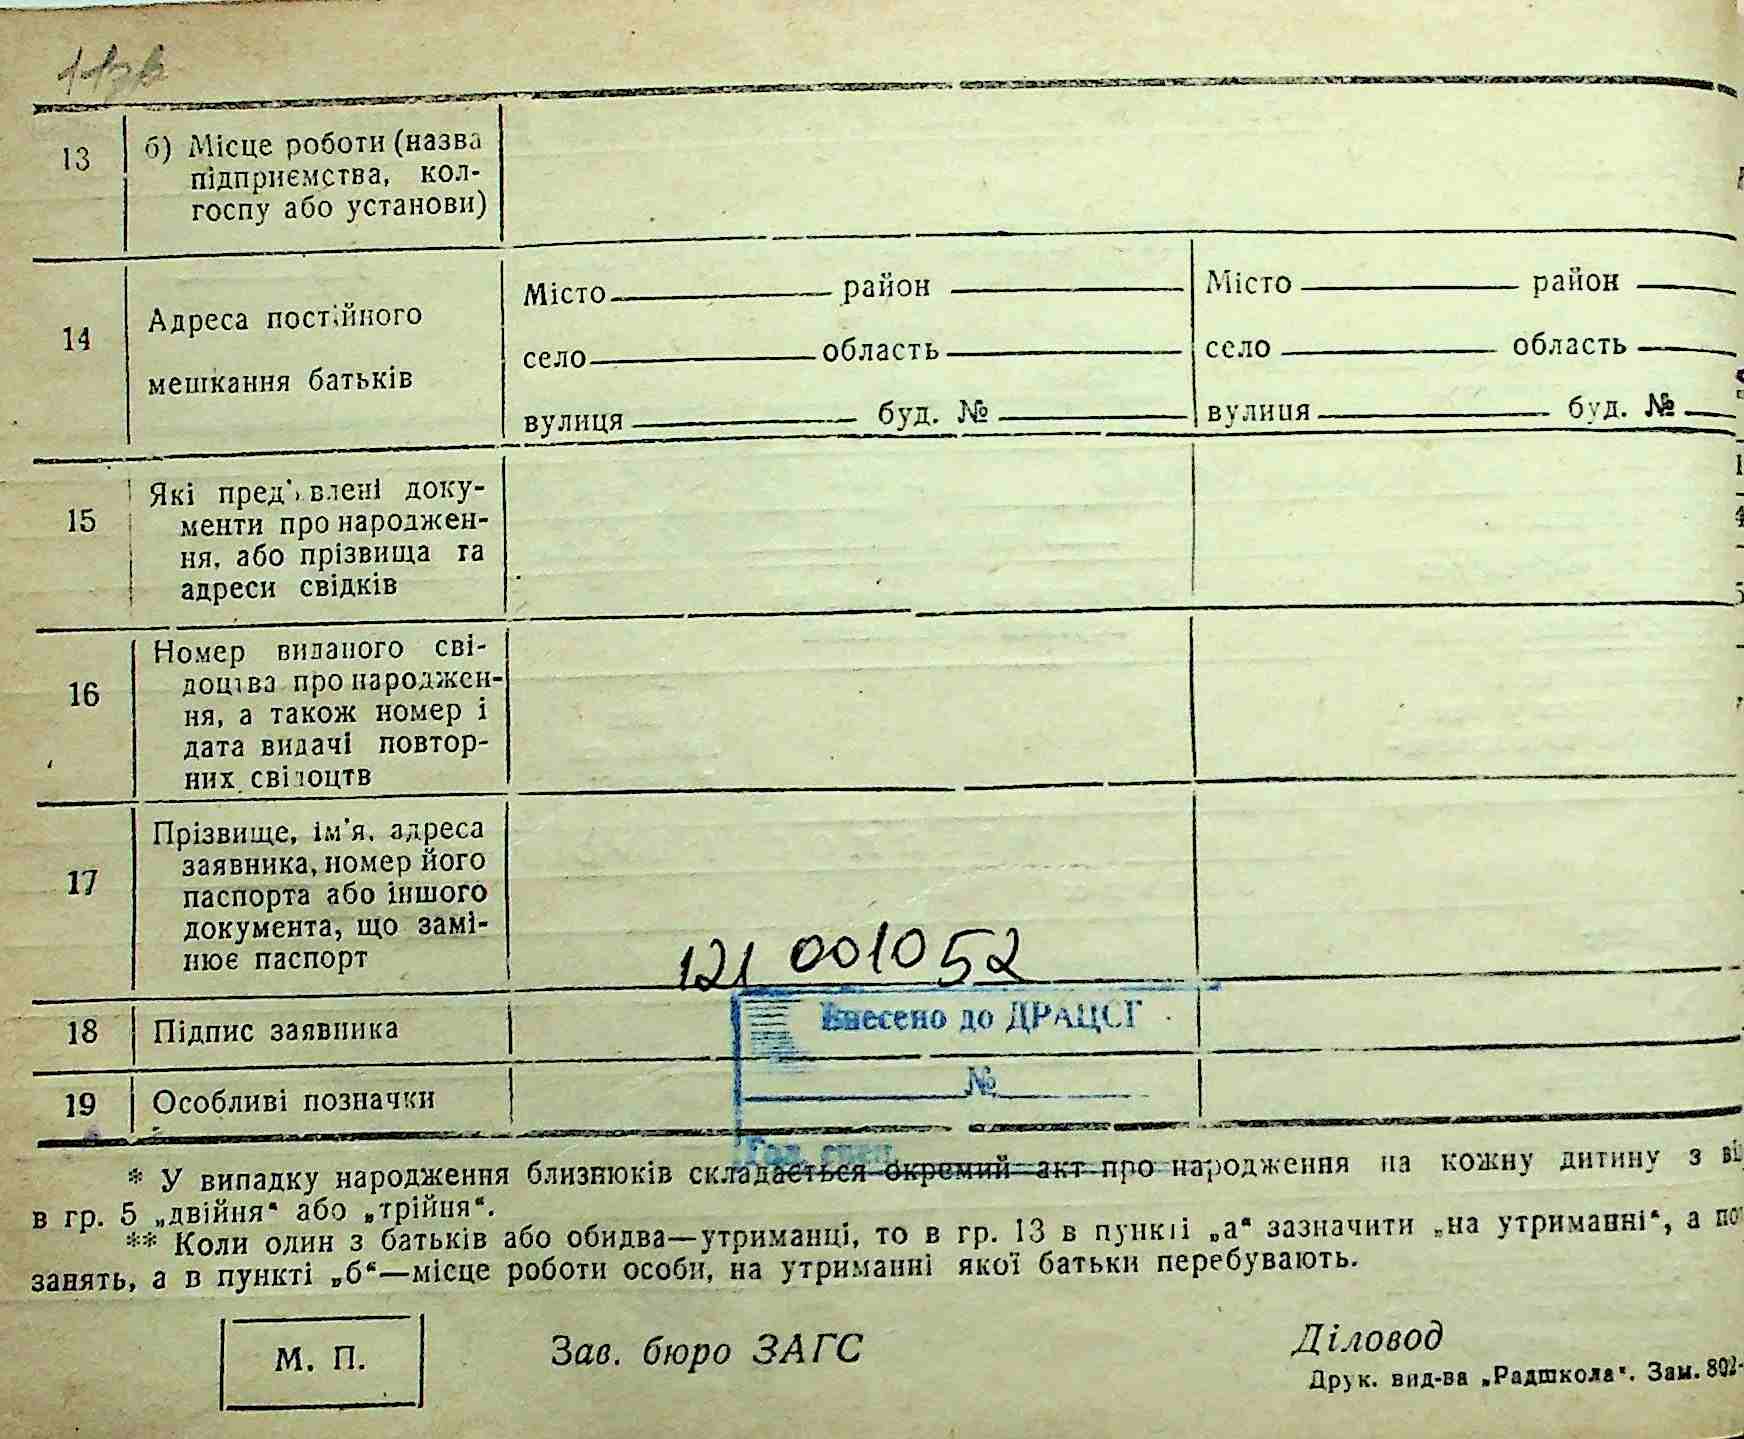 13
б) Місце роботи (назва
підприємства, кол-
госпу або установи)
14
Адреса постійного
мешкання батьків
Місто район
село область
вулиця буд. №
Місто район
село область
вулиця буд. №
15
Які пред'влені доку-
менти про народжен-
ня, або прізвища та
адреси свідків
16
Номер виданого сві-
доцтва про народжен-
ня, а також номер і
дата видачі повтор-
них свідоцтв
17
Прізвище, ім'я, адреса
заявника, номер його
паспорта або іншого
документа, що замі-
нює паспорт
121 001052
18
Підпис заявника
Внесено до ДРАЦСГ
№
19
Особливі позначки
Гол. спец.
* У випадку народження близнюків складається окремий акт про народження на кожну дитину з
в гр. 5 „двійня“ або „трійня“.
** Коли один з батьків або обидва—утриманці, то в гр. 13 в пункті „а“ зазначити „на утриманні“, а
занять, а в пункті „б“—місце роботи особи, на утриманні якої батьки перебувають.
М. П.
Зав. бюро ЗАГС
Діловод
Друк. вид-ва „Радшкола“. Зам. 802-